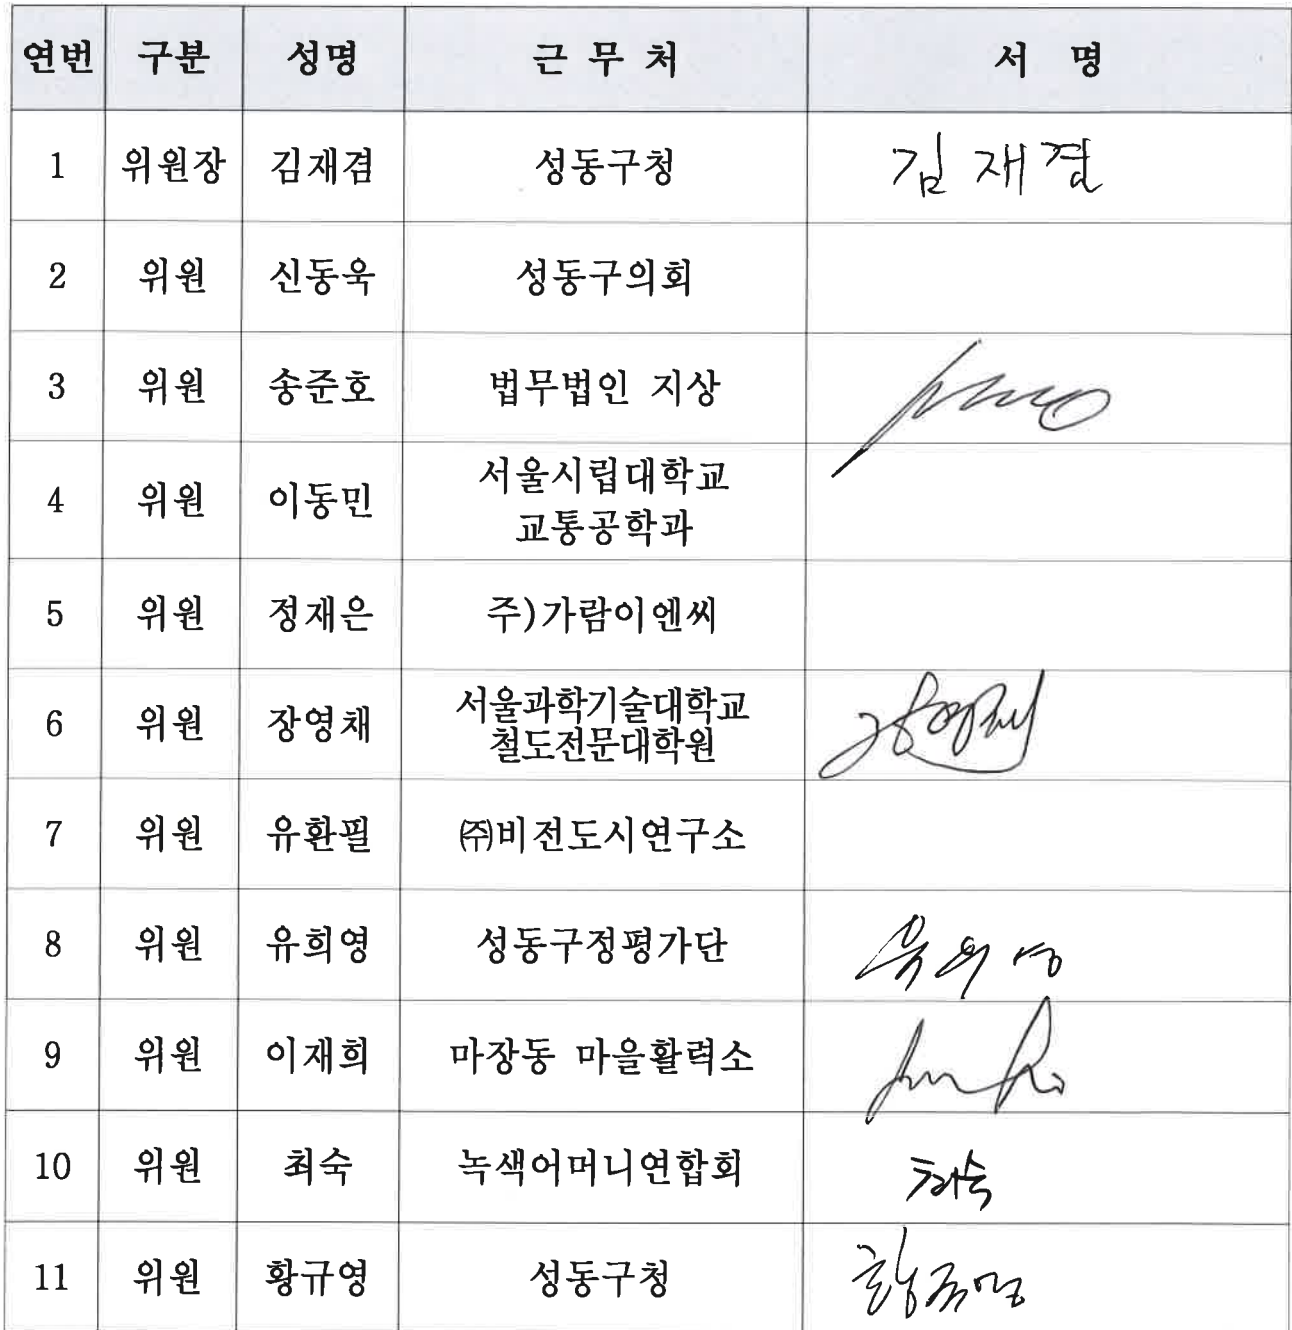 연번 구분 성명 근 무 처 서 명
1 위원장 김재겸 성동구청 김재겸
2 위원 신동욱 성동구의회
3 위원 송준호 법무법인 지상
4 위원 이동민 서울시립대학교
교통공학과
5 위원 정재은 주)가람이엔씨
6 위원 장영채 서울과학기술대학교 장영채
철도전문대학원
7 위원 유환필 ㈜비전도시연구소
8 위원 유희영 성동구정평가단 유희영
9 위원 이재희 마장동 마을활력소
10 위원 최숙 녹색어머니연합회 최숙
11 위원 황규영 성동구청 황규영